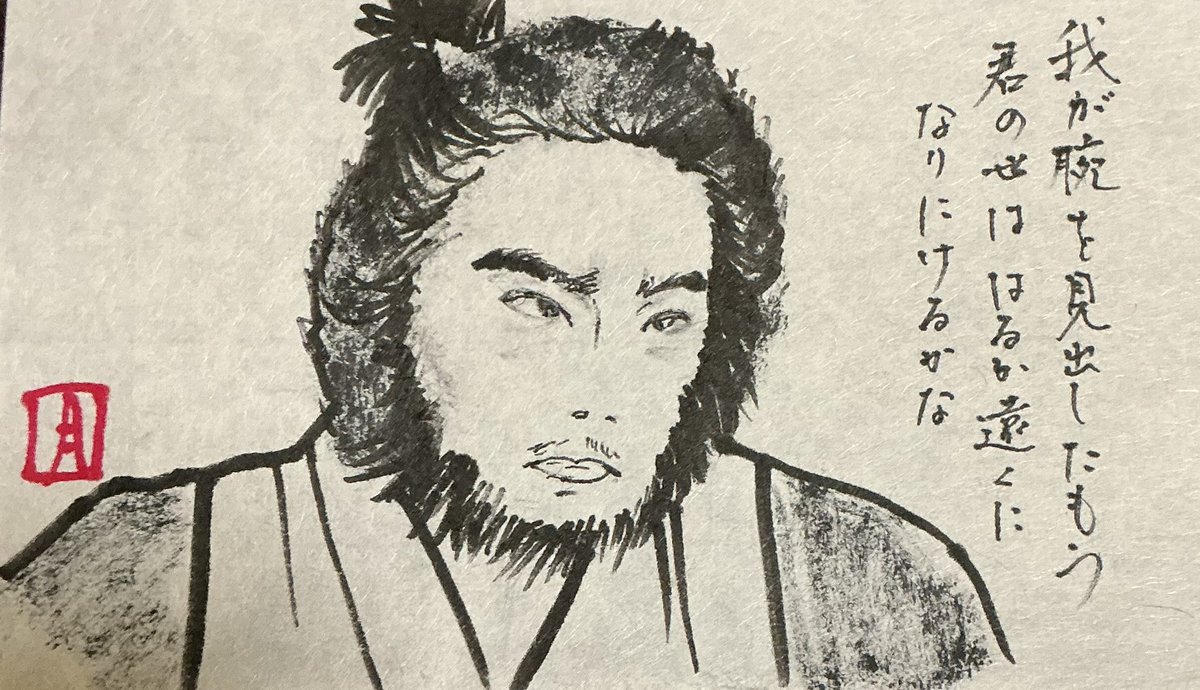 我が腕を見出したもう
君の世は はるか遠くに
なりにけるかな